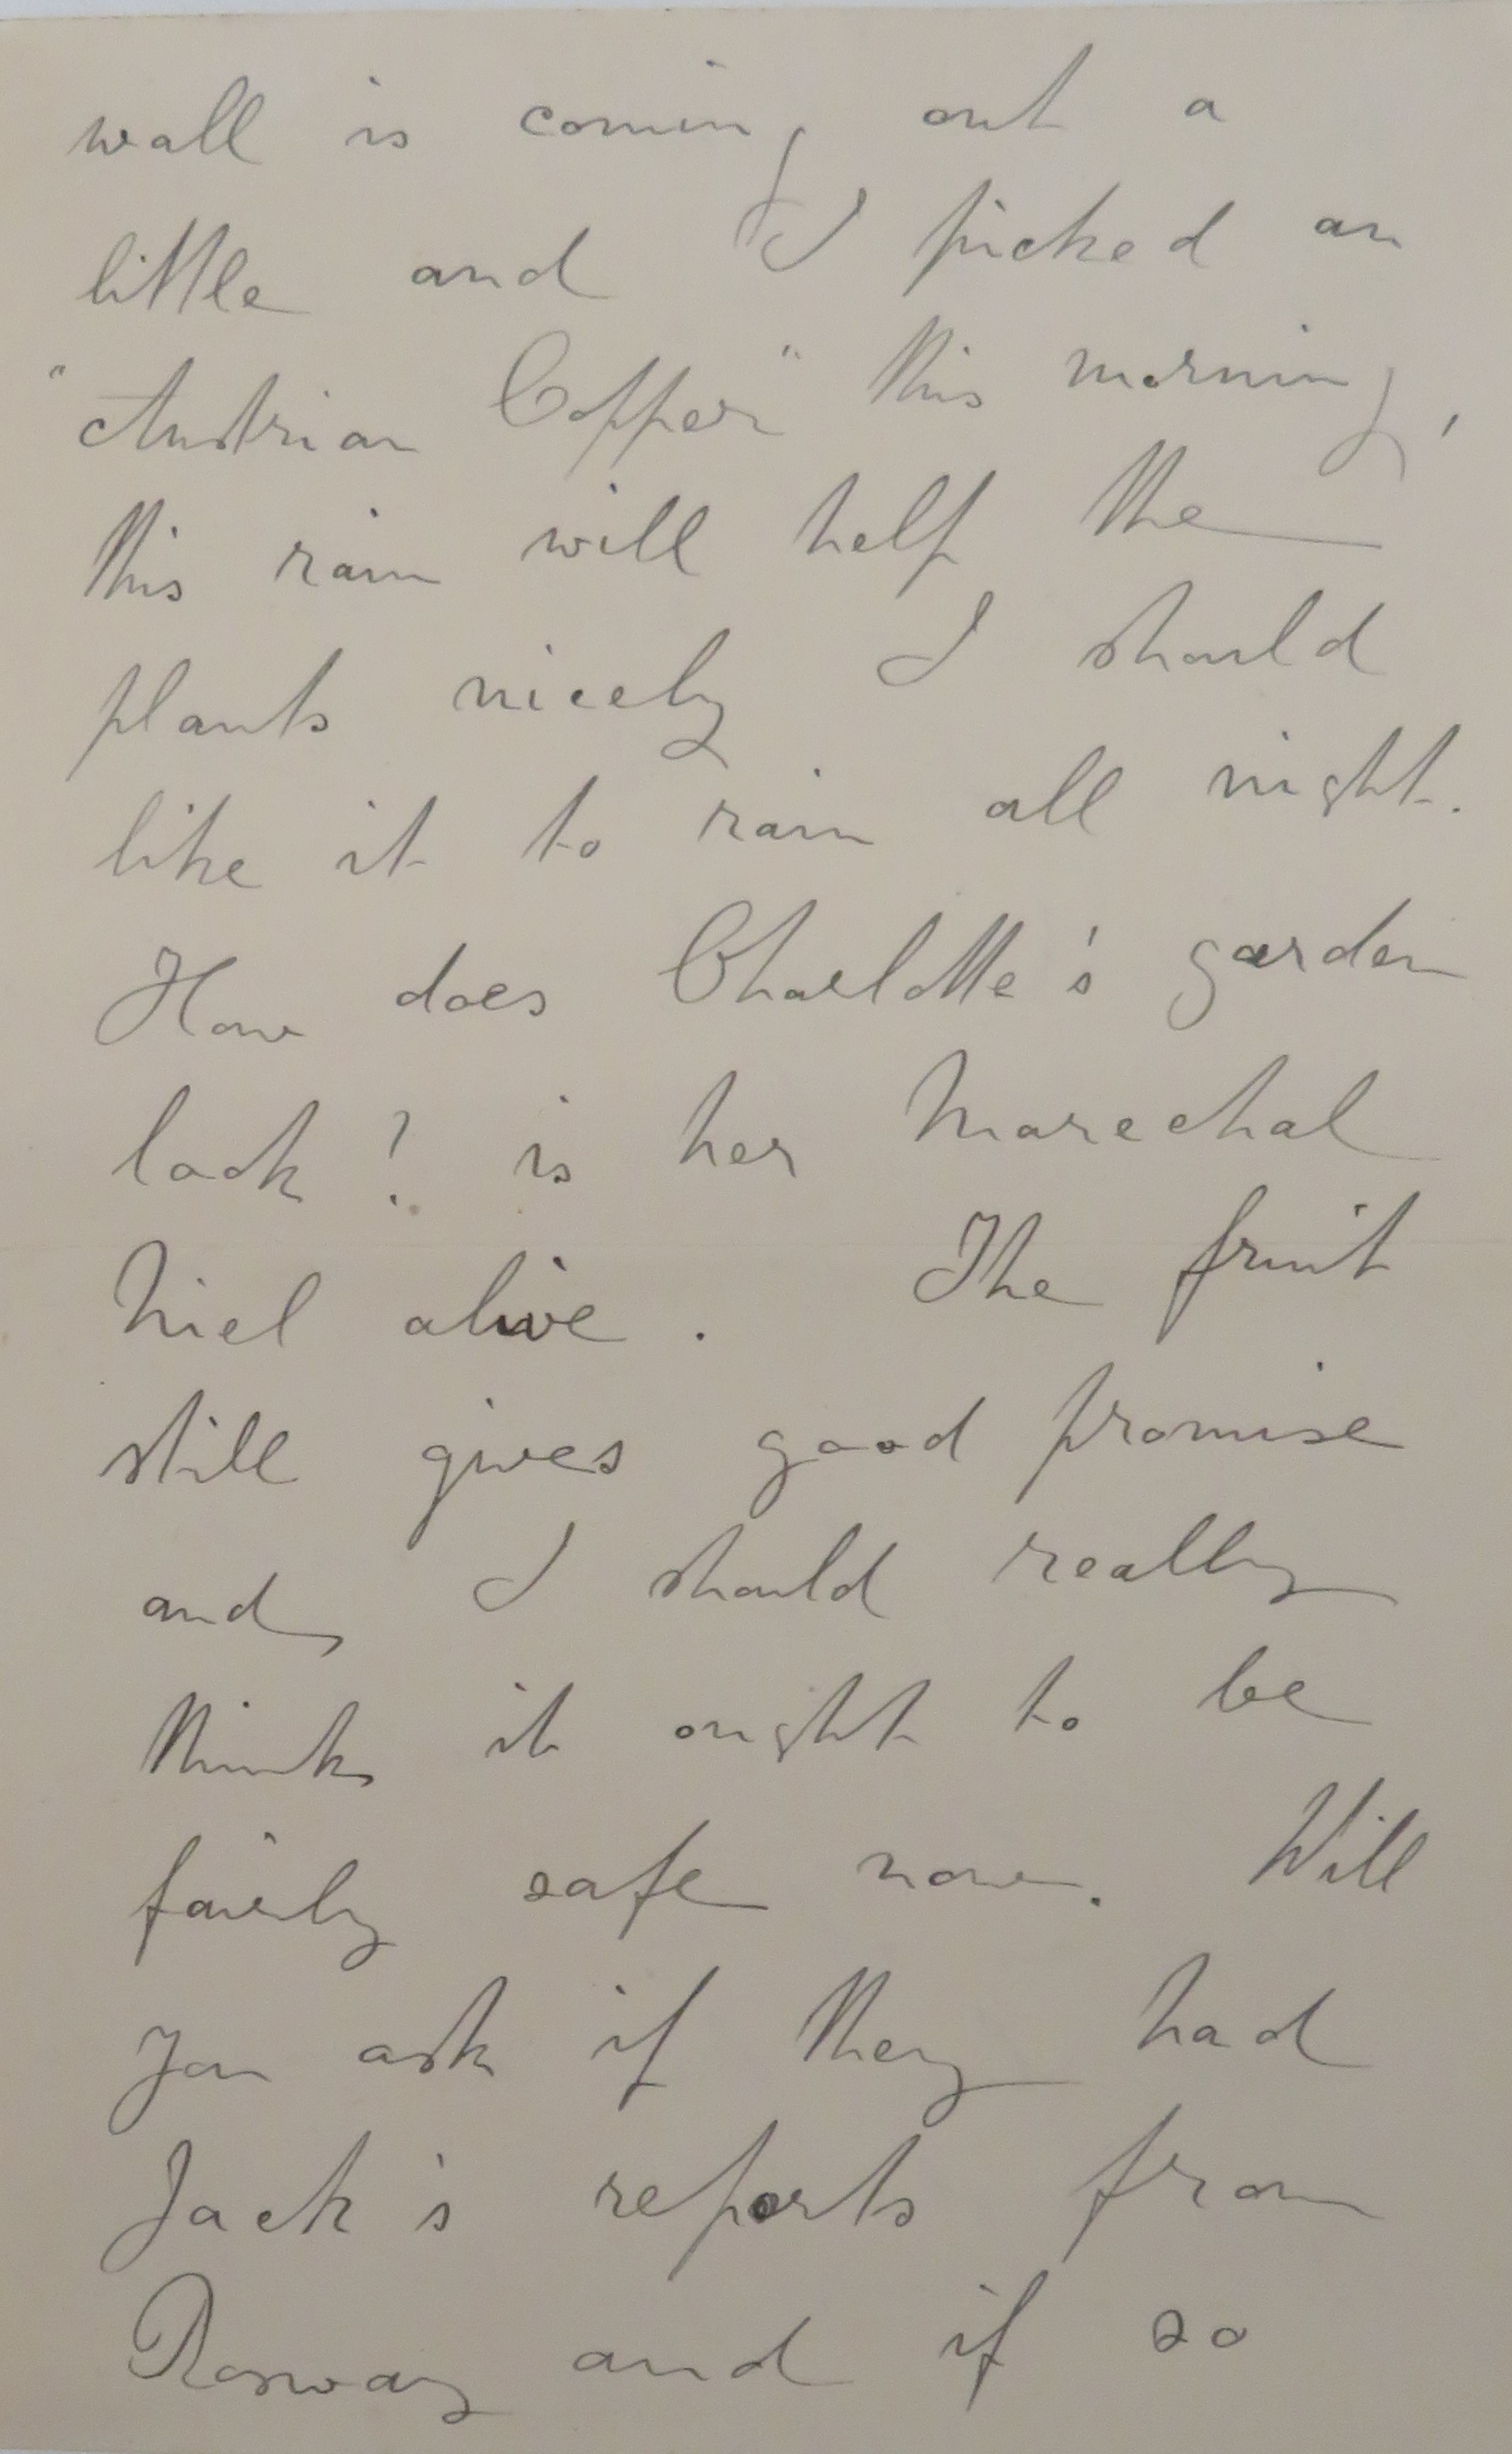 wall is coming out a
little and I picked an
"Austrian Copper" this morning,
this rain will help the
plants nicely I should
like it to rain all night.
How does Charlotte's garden
look? is her Marechal
Niel alive. The fruit
still gives good promise
and I should really
think it ought to be
fairly safe now. Will
you ask if they had
Jack's reports from
and if so